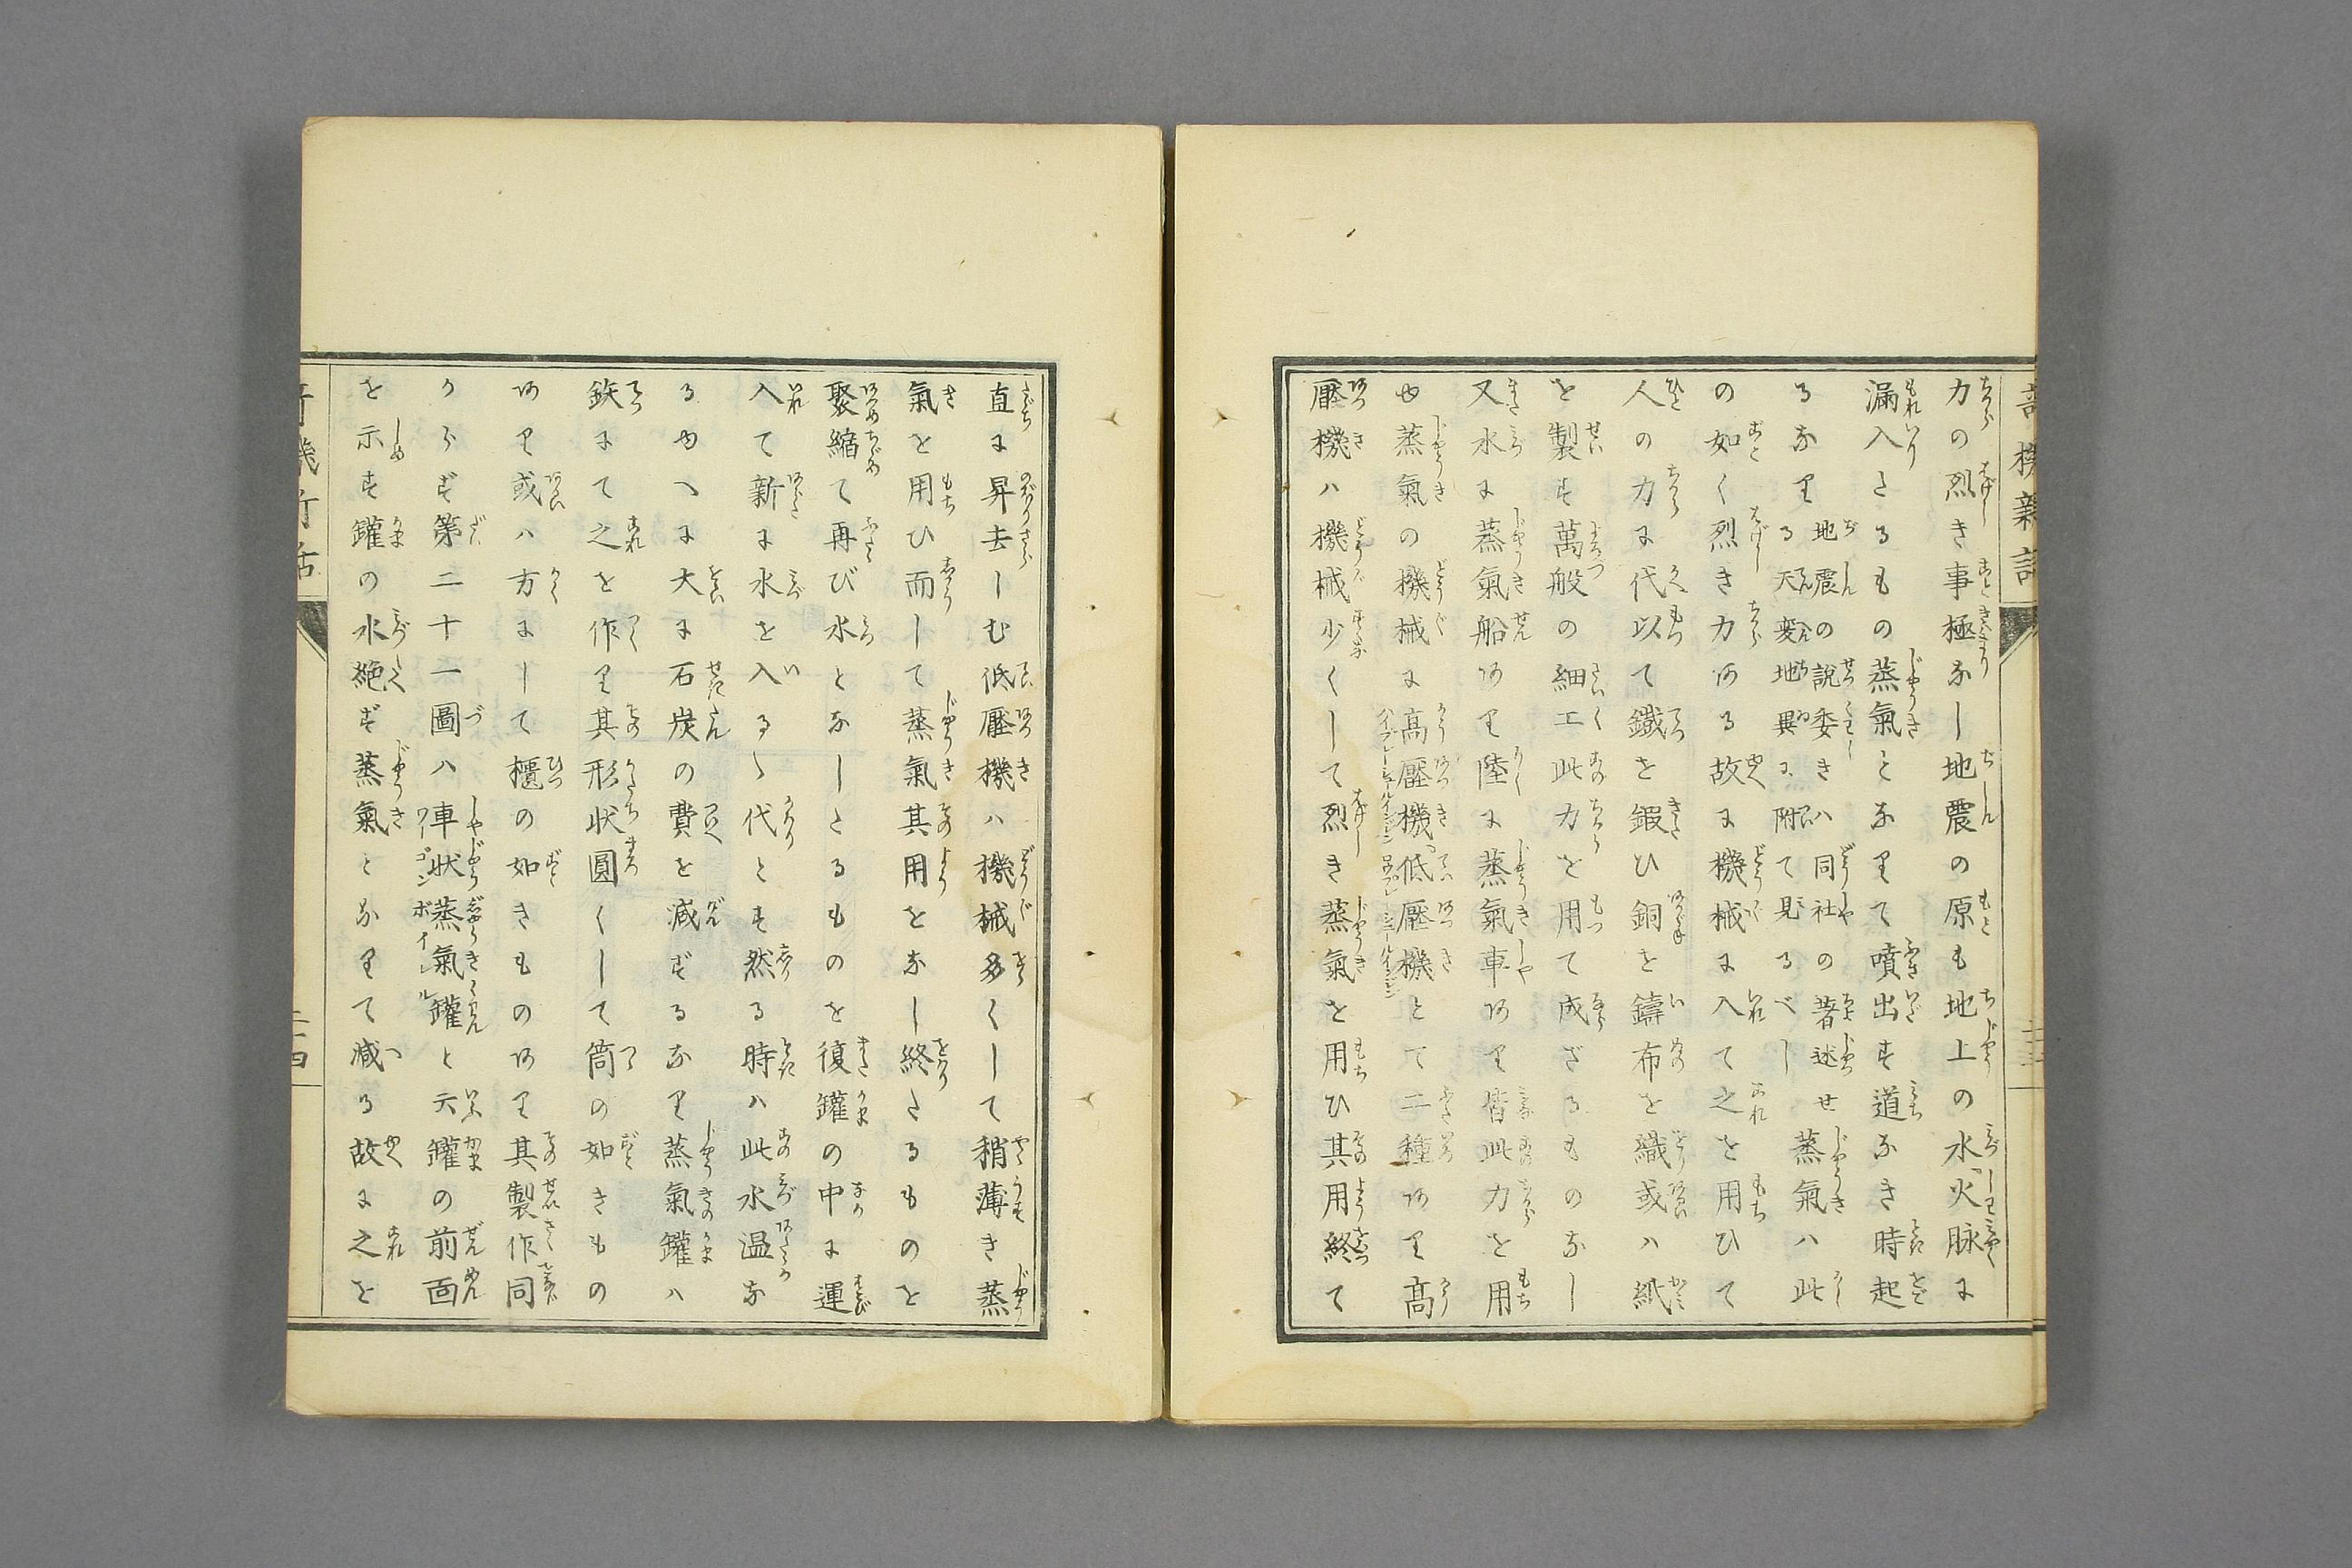 力の烈き事極なし地震の原も地上の水火脉に
漏入たるもの蒸氣となりて噴出す道なき時起
るなり
地震の説委きハ同社の著述せ
る天変地異に附て見るべし
蒸氣ハ此
の如く烈き力ある故に機械に入て之を用ひて
人の力に代以て鐵を鍛ひ銅を鑄布を織或ハ紙
を製す萬般の細工此力を用て成ざるものなし
又水に蒸氣船あり陸に蒸氣車あり皆此力を用
ゆ蒸氣の機械に高壓機低壓機とて二種あり高
壓機ハ機械少くして烈き蒸氣を用ひ其用終て
直に昇去しむ低壓機ハ機械多くして稍薄き蒸
氣を用ひ而して蒸氣其用をなし終たるものを
聚縮て再び水となしたるものを復罐の中に運
入て新に水を入るゝ代とす然る時ハ此水温な
るゆへに大に石炭の費を減ずるなり蒸氣罐ハ
鉄にて之を作り其形状圓くして筒の如きもの
あり或ハ方にして櫃の如きものあり其製作同
からず第二十一圖ハ車状蒸氣罐と云罐の前面
を示す罐の水絶ず蒸氣となりて減る故に之を